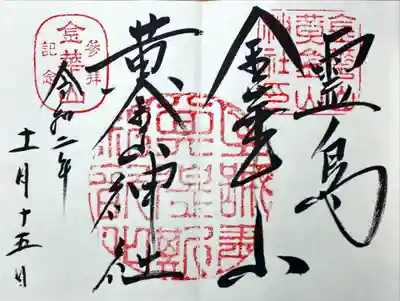 霊島
金華山
黄金山神社
令和二年
十一月十五日
參拝
金華山
記念